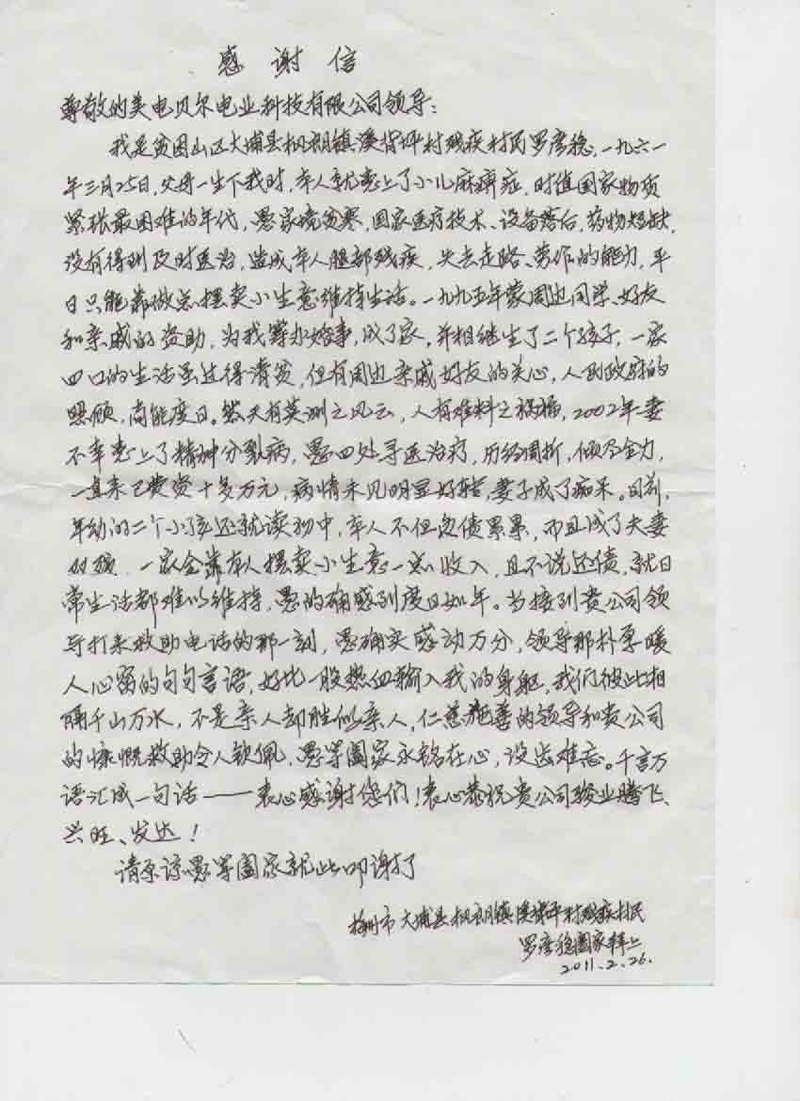 感谢信
尊敬的美电贝尔电业科技有限公司领导：
我是贫困山区大埔县枫朗镇溪背坪村残疾村民罗彦稳，一九六一
年三月25日，父母一生下我时，本人就患上了小儿麻痹症，时值国家物质
紧张最困难的年代，愚家境贫寒，国家医疗技术、设备落后，药物短缺，
没有得到及时医治，造成本人腿部残疾，失去走路、劳作的能力，平
日只能靠做点摆卖小生意维持生活。一九九五年蒙周边同学、好友
和亲戚的资助，为我筹办婚事，成了家，并相继生了二个孩子，一家
四口的生活虽过得清贫，但有周边亲戚好友的关心，人民政府的
照顾，尚能度日。然天有莫测之风云，人有难料之祸福，2002年妻
不幸患上了精神分裂病，愚四处寻医治疗，历经周折，倾尽全力，
一直来已费资十多万元，病情未见明显好转，妻子成了痴呆。目前，
年幼的二个小孩还就读初中，本人不但负债累累，而且成了夫妻
双残，一家全靠本人摆卖小生意一点收入，且不说还债，就日
常生活都难以维持，愚的确感到度日如年。当接到贵公司领
导打来救助电话的那一刻，愚确实感动万分，领导那朴厚暖
人心窝的句句言语，好比一股热血输入我的身躯，我们彼此相
隔千山万水，不是亲人却胜似亲人，仁慈施善的领导和贵公司
的慷慨救助令人钦佩，愚等阖家永铭在心，没齿难忘。千言万
语汇成一句话——衷心感谢您们！衷心恭祝贵公司骏业腾飞、
兴旺、发达！
请原谅愚等阖家就此叩谢了
梅州市大埔县枫朗镇溪背坪村残疾村民
罗彦稳阖家拜上
2011.2.26.